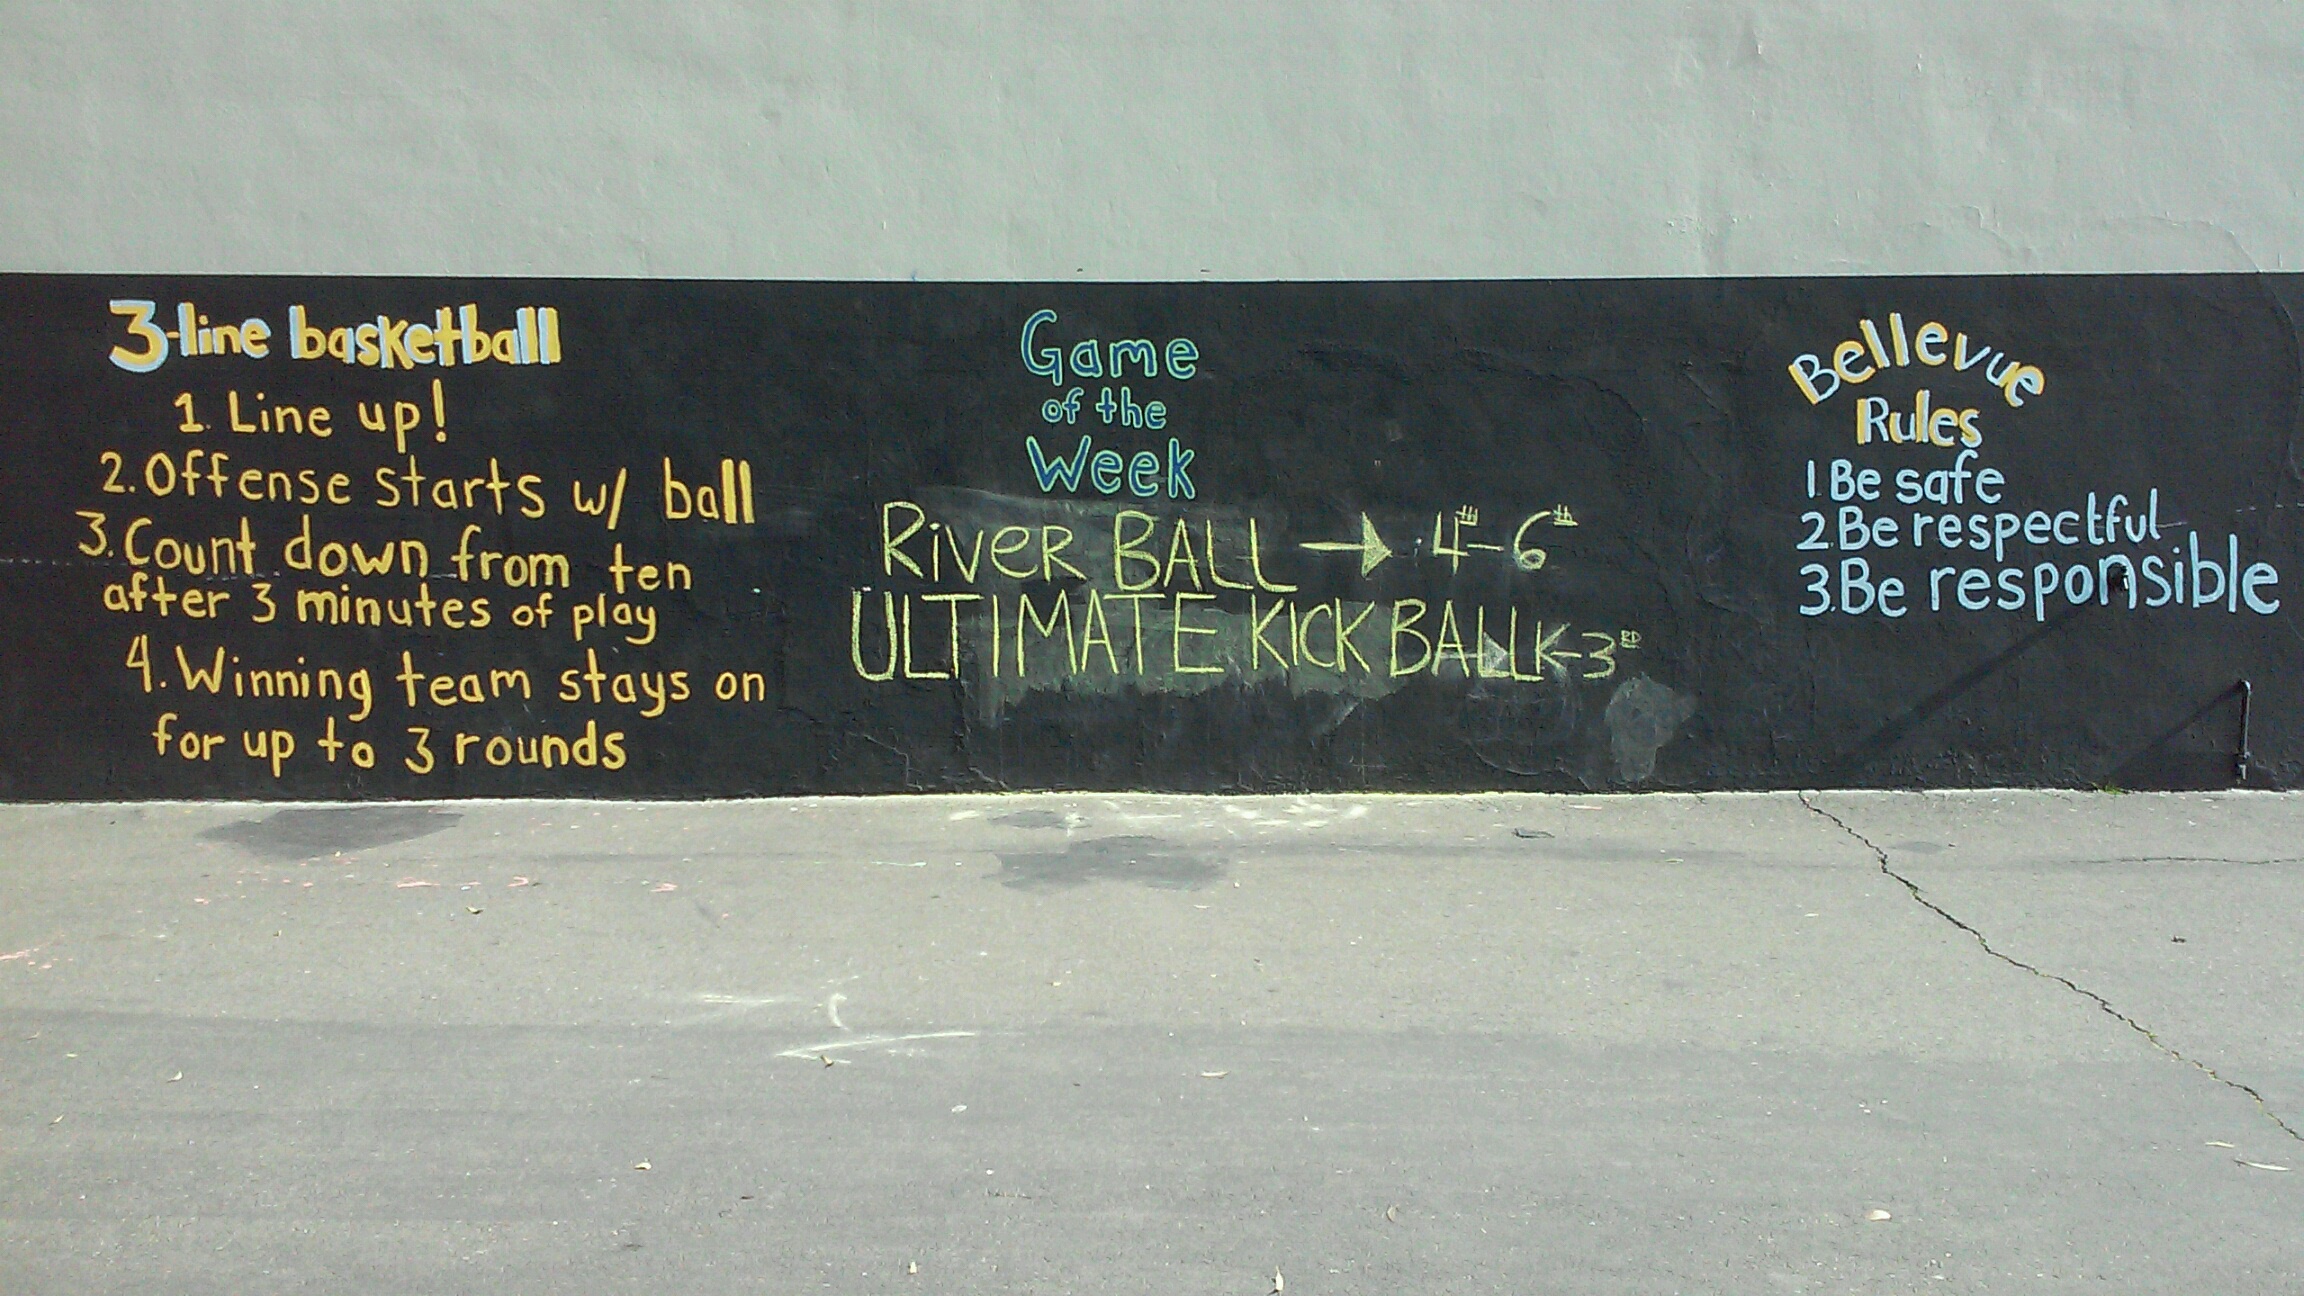 3-line basketball
1. Line up!
2. Offense starts w/ ball
3. Count down from ten
after 3 minutes of play
4. Winning team stays on
for up to 3 rounds
Game
of the
Week
RiveR BALL → 4th-6th
ULTIMATE KICK BALL K-3RD
Bellevue
Rules
1. Be safe
2. Be respectful
3. Be responsible